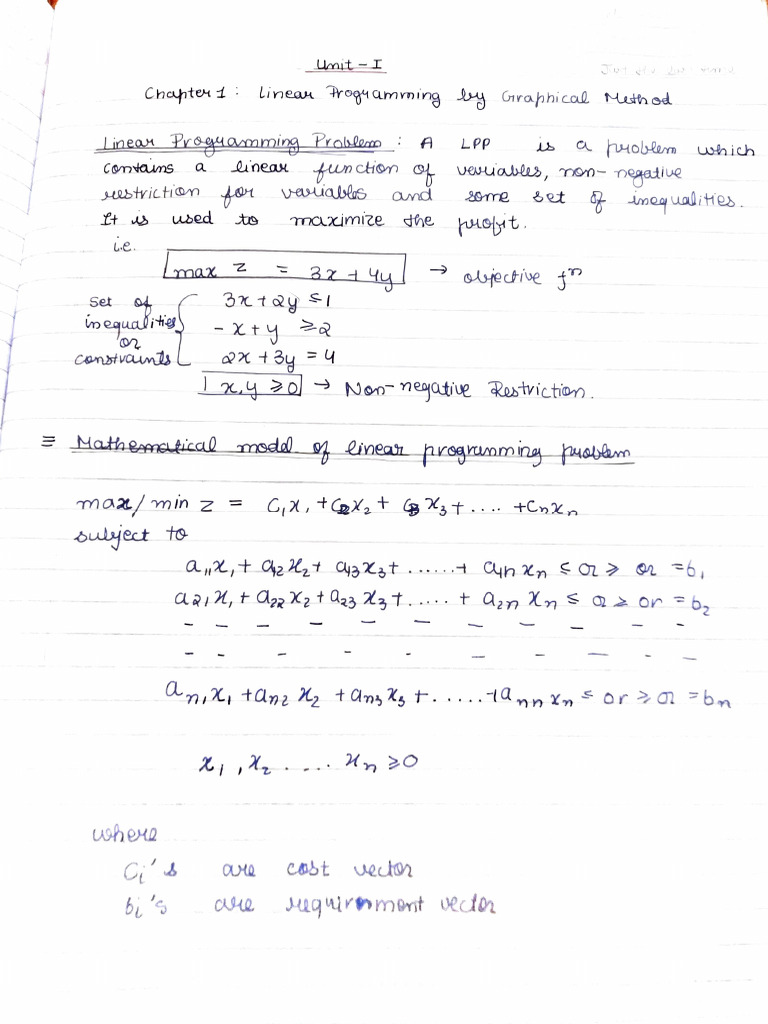 Unit - I
Chapter 1 : Linear Programming by Graphical Method
Linear Programming Problem : A LPP is a problem which
contains a linear function of variables, non-negative
restriction for variables and some set of inequalities.
It is used to maximize the profit.
i.e.
max z = 3x + 4y → objective fⁿ
set of inequalities or constraints { 3x + 2y ≤ 1
- x + y ≥ 2
2x + 3y = 4
x, y ≥ 0 → Non-negative Restriction.
≡ Mathematical model of linear programming problem
max/min z = C₁x₁ + C₂x₂ + C₃x₃ + .... + Cₙxₙ
subject to
a₁₁x₁ + a₁₂x₂ + a₁₃x₃ + ...... + a₁ₙxₙ ≤ or ≥ or = b₁
a₂₁x₁ + a₂₂x₂ + a₂₃x₃ + ..... + a₂ₙxₙ ≤ or ≥ or = b₂
- - - - - - - - - -
- - - - - - - - -
aₙ₁x₁ + aₙ₂x₂ + aₙ₃x₃ + ..... + aₙₙxₙ ≤ or ≥ or = bₙ
x₁, x₂ ..... xₙ ≥ 0
where
Cᵢ's are cost vector
bᵢ's are requirnment vector